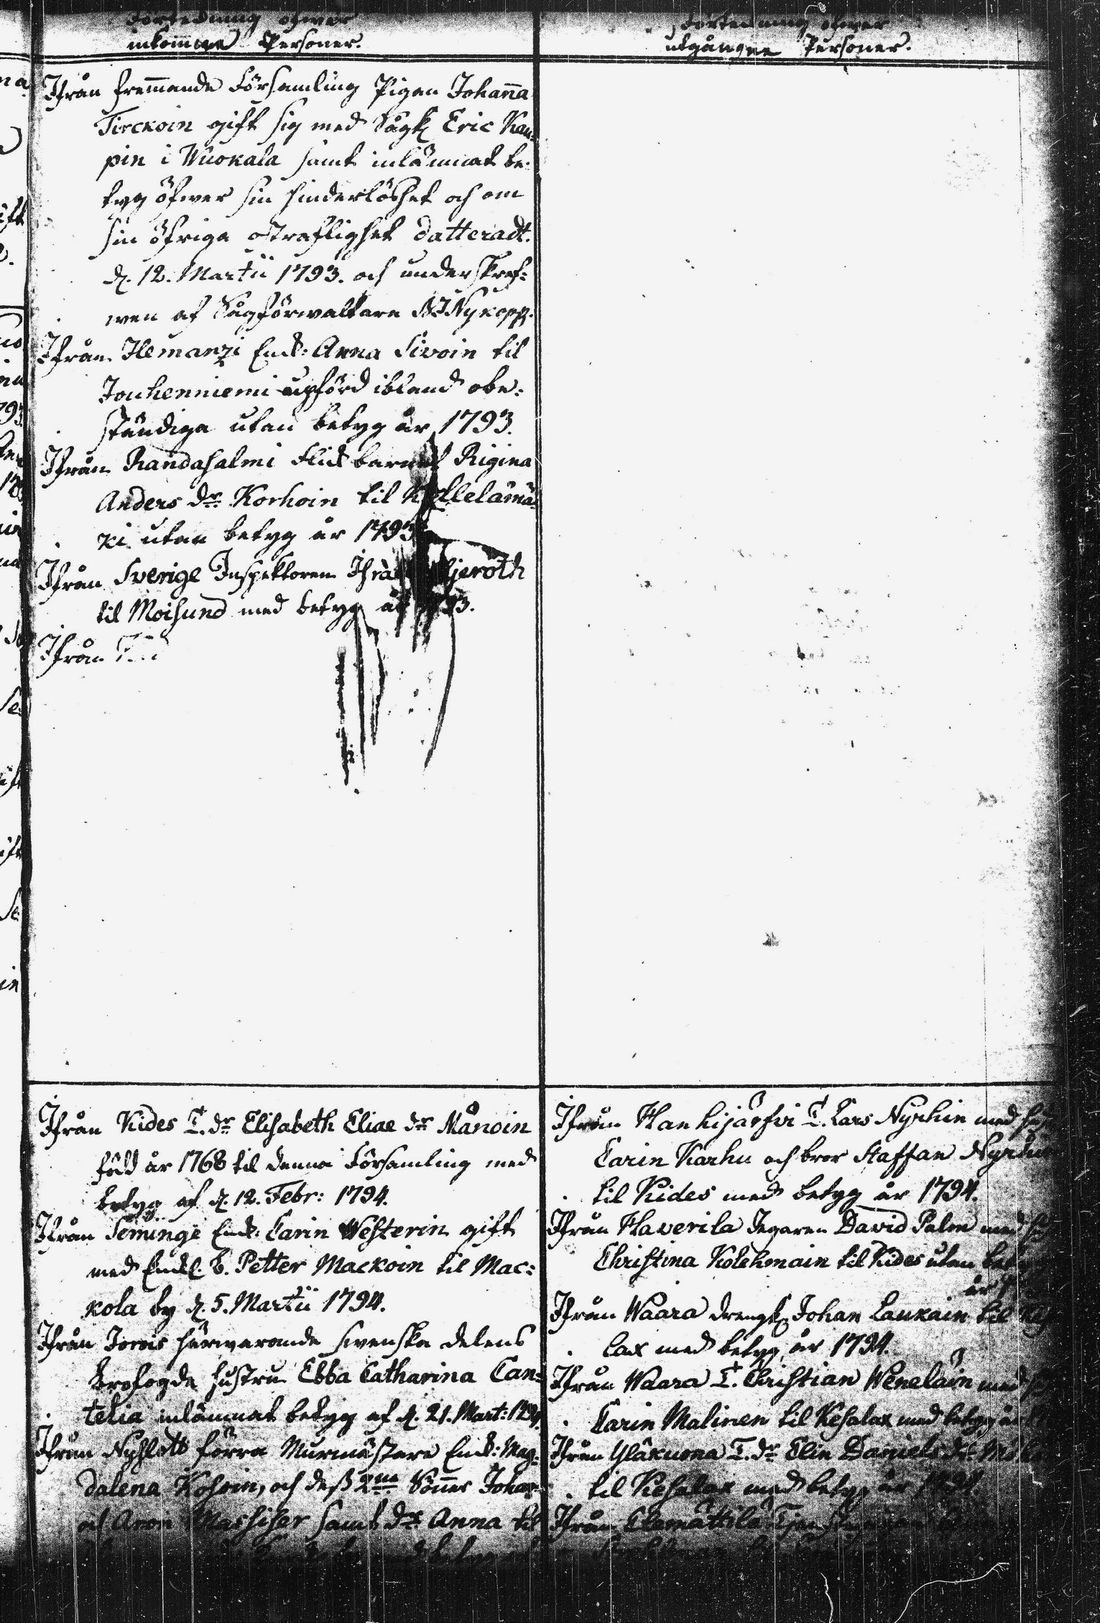 Förteckning öfwer
inkomne Personer.
Ifrån fremmande Församling Pigan Johanna
Tirckoin gift sig med Sågk. Eric Kau-
pin i Wuokala samt inlämnat be-
tyg öfwer sin hinderlöshet och om
sin öfriga ostraflighet datteradt.
d. 12. Martii 1793. och underskref-
wen af Sågförwaltare Nykopp.
Ifrån Ilemanzi Enk: Anna Sivoin til
Jouhenniemi upförd ibland obe-
ständiga utan betyg år 1793.
Ifrån Randasalmi Flick barnet Rigina
Anders dr Korhoin til
ki utan betyg år 1793
Ifrån Sverige Inspektoren
til Moisund med betyg
Ifrån
Ifrån Kides T. dr Elisabeth Eliae dr Månoin
född år 1768 til denna Församling med
betyg af d. 12. Febr: 1794.
Ifrån Seminge Enk: Carin Westerin gift
med Enkl. B. Petter Mackoin til Mac-
kola by d. 5. Martii 1794.
Ifrån Jorois härwarande swenska delens
Krofogde hustru Ebba Catharina Can-
telia inlämnat betyg af d. 21. Mart:
Ifrån Nyslott förra Murmästare Enk: Mag-
dalena och dess 2ne Söner Johan
och Aron samt dr Anna til
Förteckning öfwer
utgångne Personer.
Ifrån Hankijärfvi T. Lars Nyrhin med
Carin Karhu och bror Staffan
til Kides med betyg år 1794.
Ifrån Haverila Jegaren David Palm med
Christina Kolehmain til Kides utan
år
Ifrån Waara drengk Johan Laukain til
lax med betyg år 1794.
Ifrån Waara T. Christian Wenelain med
Carin Malinen til Kesalax med betyg år
Ifrån Yläkuona T. dr Elin Daniels dr
til Kesalax med betyg år
Ifrån